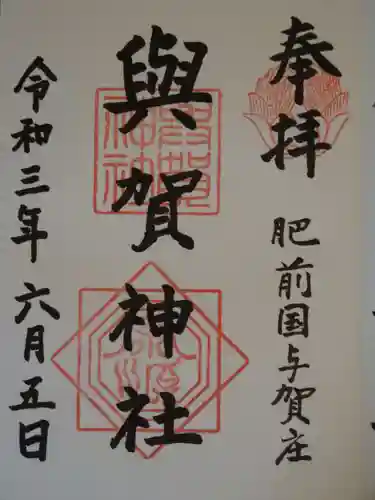 奉拝
肥前国与賀庄
與賀神社
令和三年六月五日